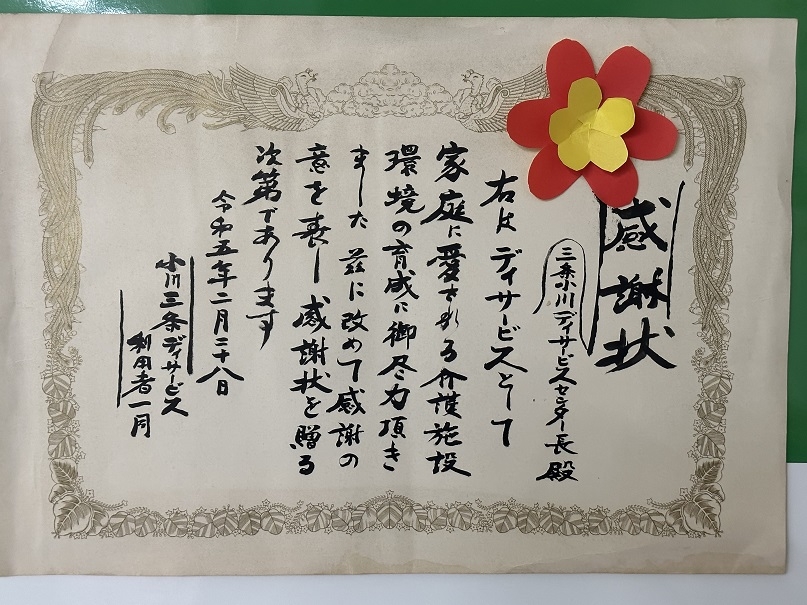 感謝状
三条小川デイサービスセンター長殿
右はデイサービスとして
家庭に愛される介護施設
環境の育成に御尽力頂き
ました 茲に改めて感謝の
意を表し感謝状を贈る
次第であります
令和五年二月二十八日
小川三条デイサービス
利用者一同